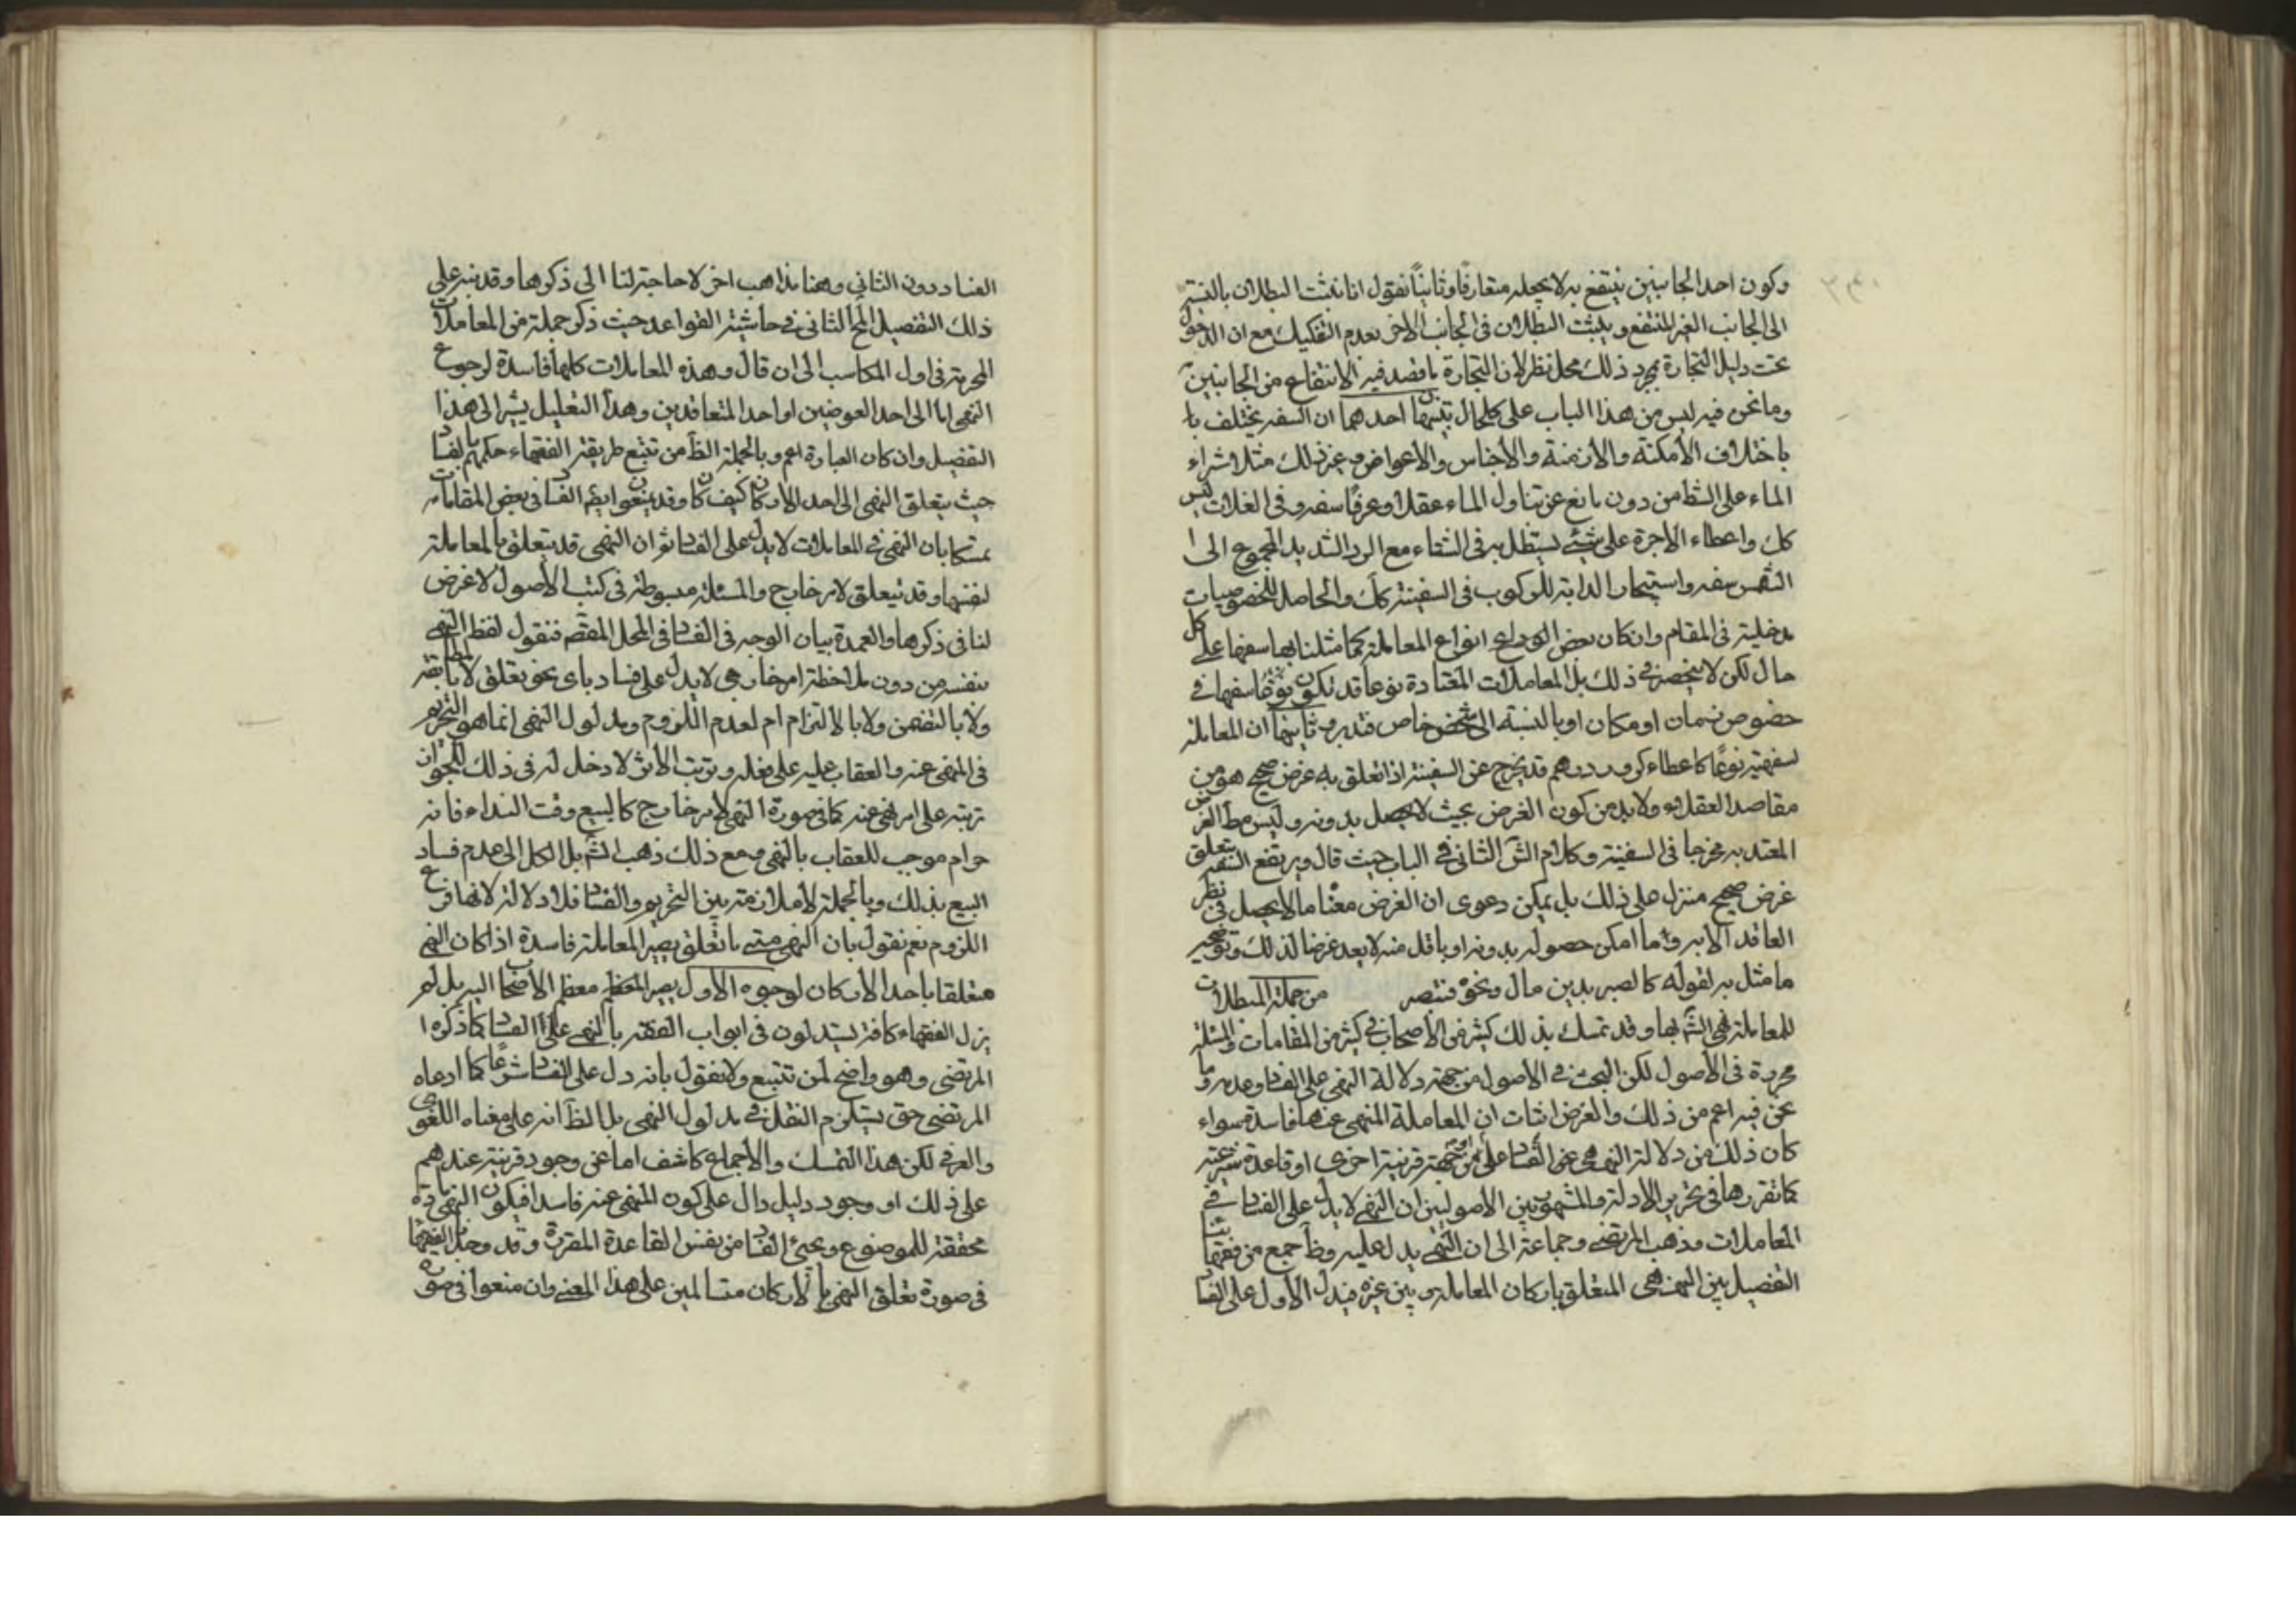 وكون احد الجانبين ينتفع به لا يجعله متعارفًا وثانيًا نقول انا نثبت البطلان بالنسبة
الى الجانب الغير المنتفع ويثبت البطلان فى الجانب الاخر بعدم التفكيك مع ان الدخول
تحت دليل التجارة بمجرد ذلك محل نظر لان التجارة ما قصد فيه الانتفاع من الجانبين
وما نحن فيه ليس من هذا الباب على كلحال تنبيها احدهما ان السفه يختلف با
باختلاف الأمكنة والازمنة والأجناس والاعواض وغير ذلك مثلا شراء
الماء على الشط من دون مانع عن تناول الماء عقلا وعرفًا سفه وفى الفلات ليس
كك واعطاء الاجرة على شئ يستظل به فى الشتاء مع البرد الشديد المحوج الى ا
الشمس سفه واستيجار الدابة للركوب فى السفينة كك والحاصل للخصوصيات
مدخلية فى المقام وان كان بعض انواع المعاملة كما مثلنا بها سفها على كل
حال لكن لا ينحصر فى ذلك بل المعاملات المعتادة نوعا قد تكون سفها فى
خصوص زمان او مكان او بالنسبة الى شخص خاص فتدبر وثانيها ان المعاملة
لسفهية نوعًا كاعطاء كرور درهم قد يخرج عن السفهية اذا تعلق به غرض صحيح هو من
مقاصد العقلاء ولا بد من كون الغرض بحيث لا يحصل بدونه وليس مط الغرض
المعتد به مخرجا فى السفهية وكلام الش الثانى فى الباب حيث قال ويرتفع السفه بتعلق
غرض صحيح منزل على ذلك بل يمكن دعوى ان الغرض معنا ما لا يحصل فى نظر
العاقد الا به واما امكن حصوله بدونه او باقل منه لا يعد غرضا لذلك وتوجيه
ما مثل به لقوله كالصبر بدين مال ونحوه فتبصر من جملة المبطلات
للمعاملة نهى الش بها وقد تمسك بذلك كثير من الاصحاب فى كثير من المقامات والمسئلة
محررة فى الأصول لكن البحث فى الاصول من جهة دلالة النهى على الفساد وعدمه وما
نحن فيه اعم من ذلك والغرض اثبات ان المعاملة المنهى عنها فاسدة سواء
كان ذلك من دلالة النهى على الفساد او من جهة قرينة اخرى او قاعدة شرعية
كما تقررها فى تحرير الادلة والمشهور بين الاصوليين ان النهى لا يدل على الفساد فى
المعاملات وذهب المرتضى وجماعة الى ان النهى يدل عليه وظآ جمع من فقهائنا
التفصيل بين النهى المتعلق باركان المعاملة وبين غيره فيدل الأول على الفسا
الفساد دون الثانى وهنا مذاهب اخر لا حاجة لنا الى ذكرها وقد نبه على
ذلك التفصيل المح الثانى فى حاشية القواعد حيث ذكر جملة من المعاملات
المحرمة فى اول المكاسب الى ان قال وهذه المعاملات كلها فاسدة لرجوع
النهى اما الى احد العوضين او احد المتعاقدين وهذا التعليل يشير الى هذا
التفصيل وان كان العبارة اعم وبالجملة الظآ من تتبع طريقة الفقهاء حكمهم بالفساد
حيث يتعلق النهى الى احد الاركان كيف كان وقد يمنعوا ايضا الفساد فى بعض المقامات
تمسكا بان النهى فى المعاملات لا يدل على الفساد ثم ان النهى قد يتعلق بالمعاملة
لنفسها وقد يتعلق لامر خارج والمسئلة مبسوطة فى كتب الأصول لا غرض
لنا فى ذكرها والعمدة بيان الوجه فى الفساد فى المحل المقص فنقول لفظ النهى
بنفسه من دون ملاحظة امر خارجى لا يدل على فساد باى نحو تعلق لا بالمطابقة
ولا بالتضمن ولا بالالتزام ام لعدم اللزوم ومدلول النهى انما هو التحريم
فى المنهى عنه والعقاب عليه على فعله وترتب الأثر لا دخل له فى ذلك لجواز
ترتبه على امر نهى عنه كما فى صورة النهى لامر خارج كالبيع وقت النداء فانه
حرام موجب للعقاب بالنهى ومع ذلك ذهب الش بل الكل الى عدم فساد
البيع بذلك وبالجملة لا ملازمة بين التحريم والفساد فلا دلالة لانها فرع
اللزوم نعم نقول بان النهى متى ما تعلق يصير المعاملة فاسدة اذا كان النهى
متعلقا باحد الأركان لوجوه الأول مصير المعظم معظم الأصحاب اليه بل لم
يزل الفقهاء كافة يستدلون فى ابواب الفقه بالنهى على الفساد كما ذكره ا
المرتضى وهو واضح لمن تتبع ولا نقول بانه دل على الفساد شرعا كما ادعاه
المرتضى حتى يستلزم النقل فى مدلول النهى بل الظآ انه على معناه اللغوى
والعرفى لكن هذا التمسك والأجماع كاشف اما عن وجود قرينة عندهم
على ذلك او وجود دليل دال على كون المنهى عنه فاسدا فيكون النهى مادة
محققة للموضوع ويجئ الفساد من نفس القاعدة المقررة وقد وجدنا الفقهاء
فى صورة تعلق النهى بالاركان متسالمين على هذا المعنى وان منعوا فى صورة